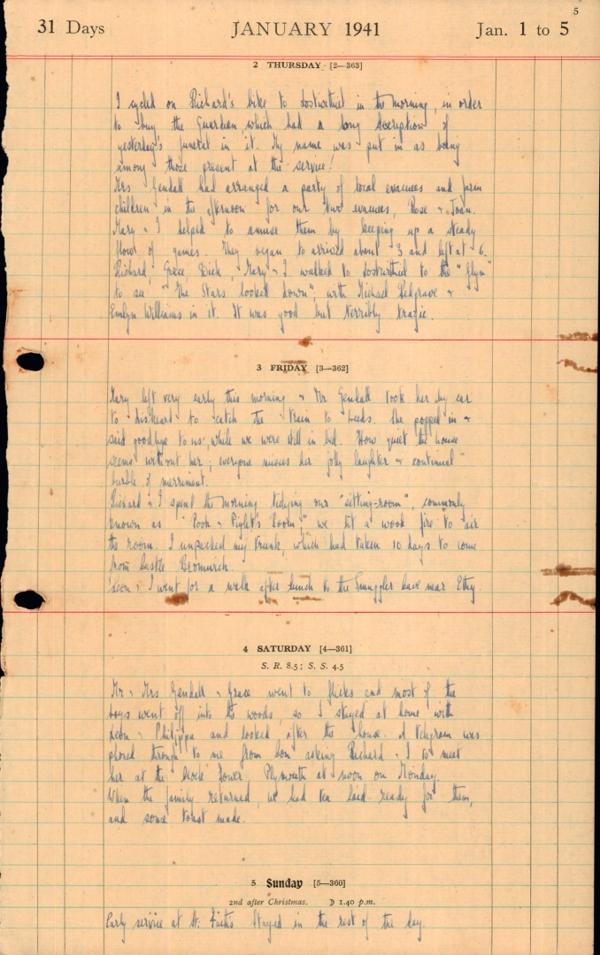 5
31 Days JANUARY 1941 Jan. 1 to 5
2 THURSDAY [2—363]
I cycled on Richard's bike to Lostwithiel in the morning, in order
to buy the Guardian which had a long description of
yesterday's funeral in it. My name was put in as being
among those present at the service!
Mrs Gendall had arranged a party of local evacuees and farm
children in the afternoon for our two evacuees, Rose & Joan.
Mary & I helped to amuse them by keeping up a steady
flow of games. They began to arrived about 3 and left at 6.
Richard, Grace, Dick, Mary & I walked to Lostwithiel to the "
to see "The Stars looked down", with Michael Redgrave &
Emlyn Williams in it. It was good but terribly tragic.
3 FRIDAY [3—362]
Mary left very early this morning & Mr Gendall took her by car
to Liskeard to catch the train to Leeds. She popped in &
said goodbye to us, while we were still in bed. How quiet the house
seems without her; everyone misses her jolly laughter & continual
burble of merriment.
Richard & I spent the morning tidying our "sitting-room", commonly
known as "Pooh & Piglet's Room"; we lit a wood fire to air
the room. I unpacked my trunk, which had taken 10 days to come
from Castle Bromwich.
& I went for a walk after lunch to the Smuggler's Cave near
4 SATURDAY [4—361]
S. R. 8.5; S. S. 4.5
Mr & Mrs Gendall & Grace went to flicks and most of the
boys went off into the woods, so I stayed at home with
& Philippa and looked after the house. A telegram was
phoned through to me from asking Richard & I to meet
her at the Clock Tower, Plymouth at noon on Monday.
When the family returned, we had tea laid ready for them,
and some toast made.
5 Sunday [5—360]
2nd after Christmas. ☽ 1.40 p.m.
Early service at St. Stayed in the rest of the day.